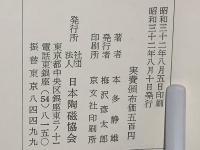 昭和三十二年八月五日印刷
昭和三十二年八月十日発行
実費頒布価五百円
著者 本多静雄
発行者 梅沢彦太郎
印刷所 京文社印刷所
発行所 社団法人 日本陶磁協会
東京都中央区銀座東三ノ十一
電話東銀座(54)八一五〇
振替東京八四四九九